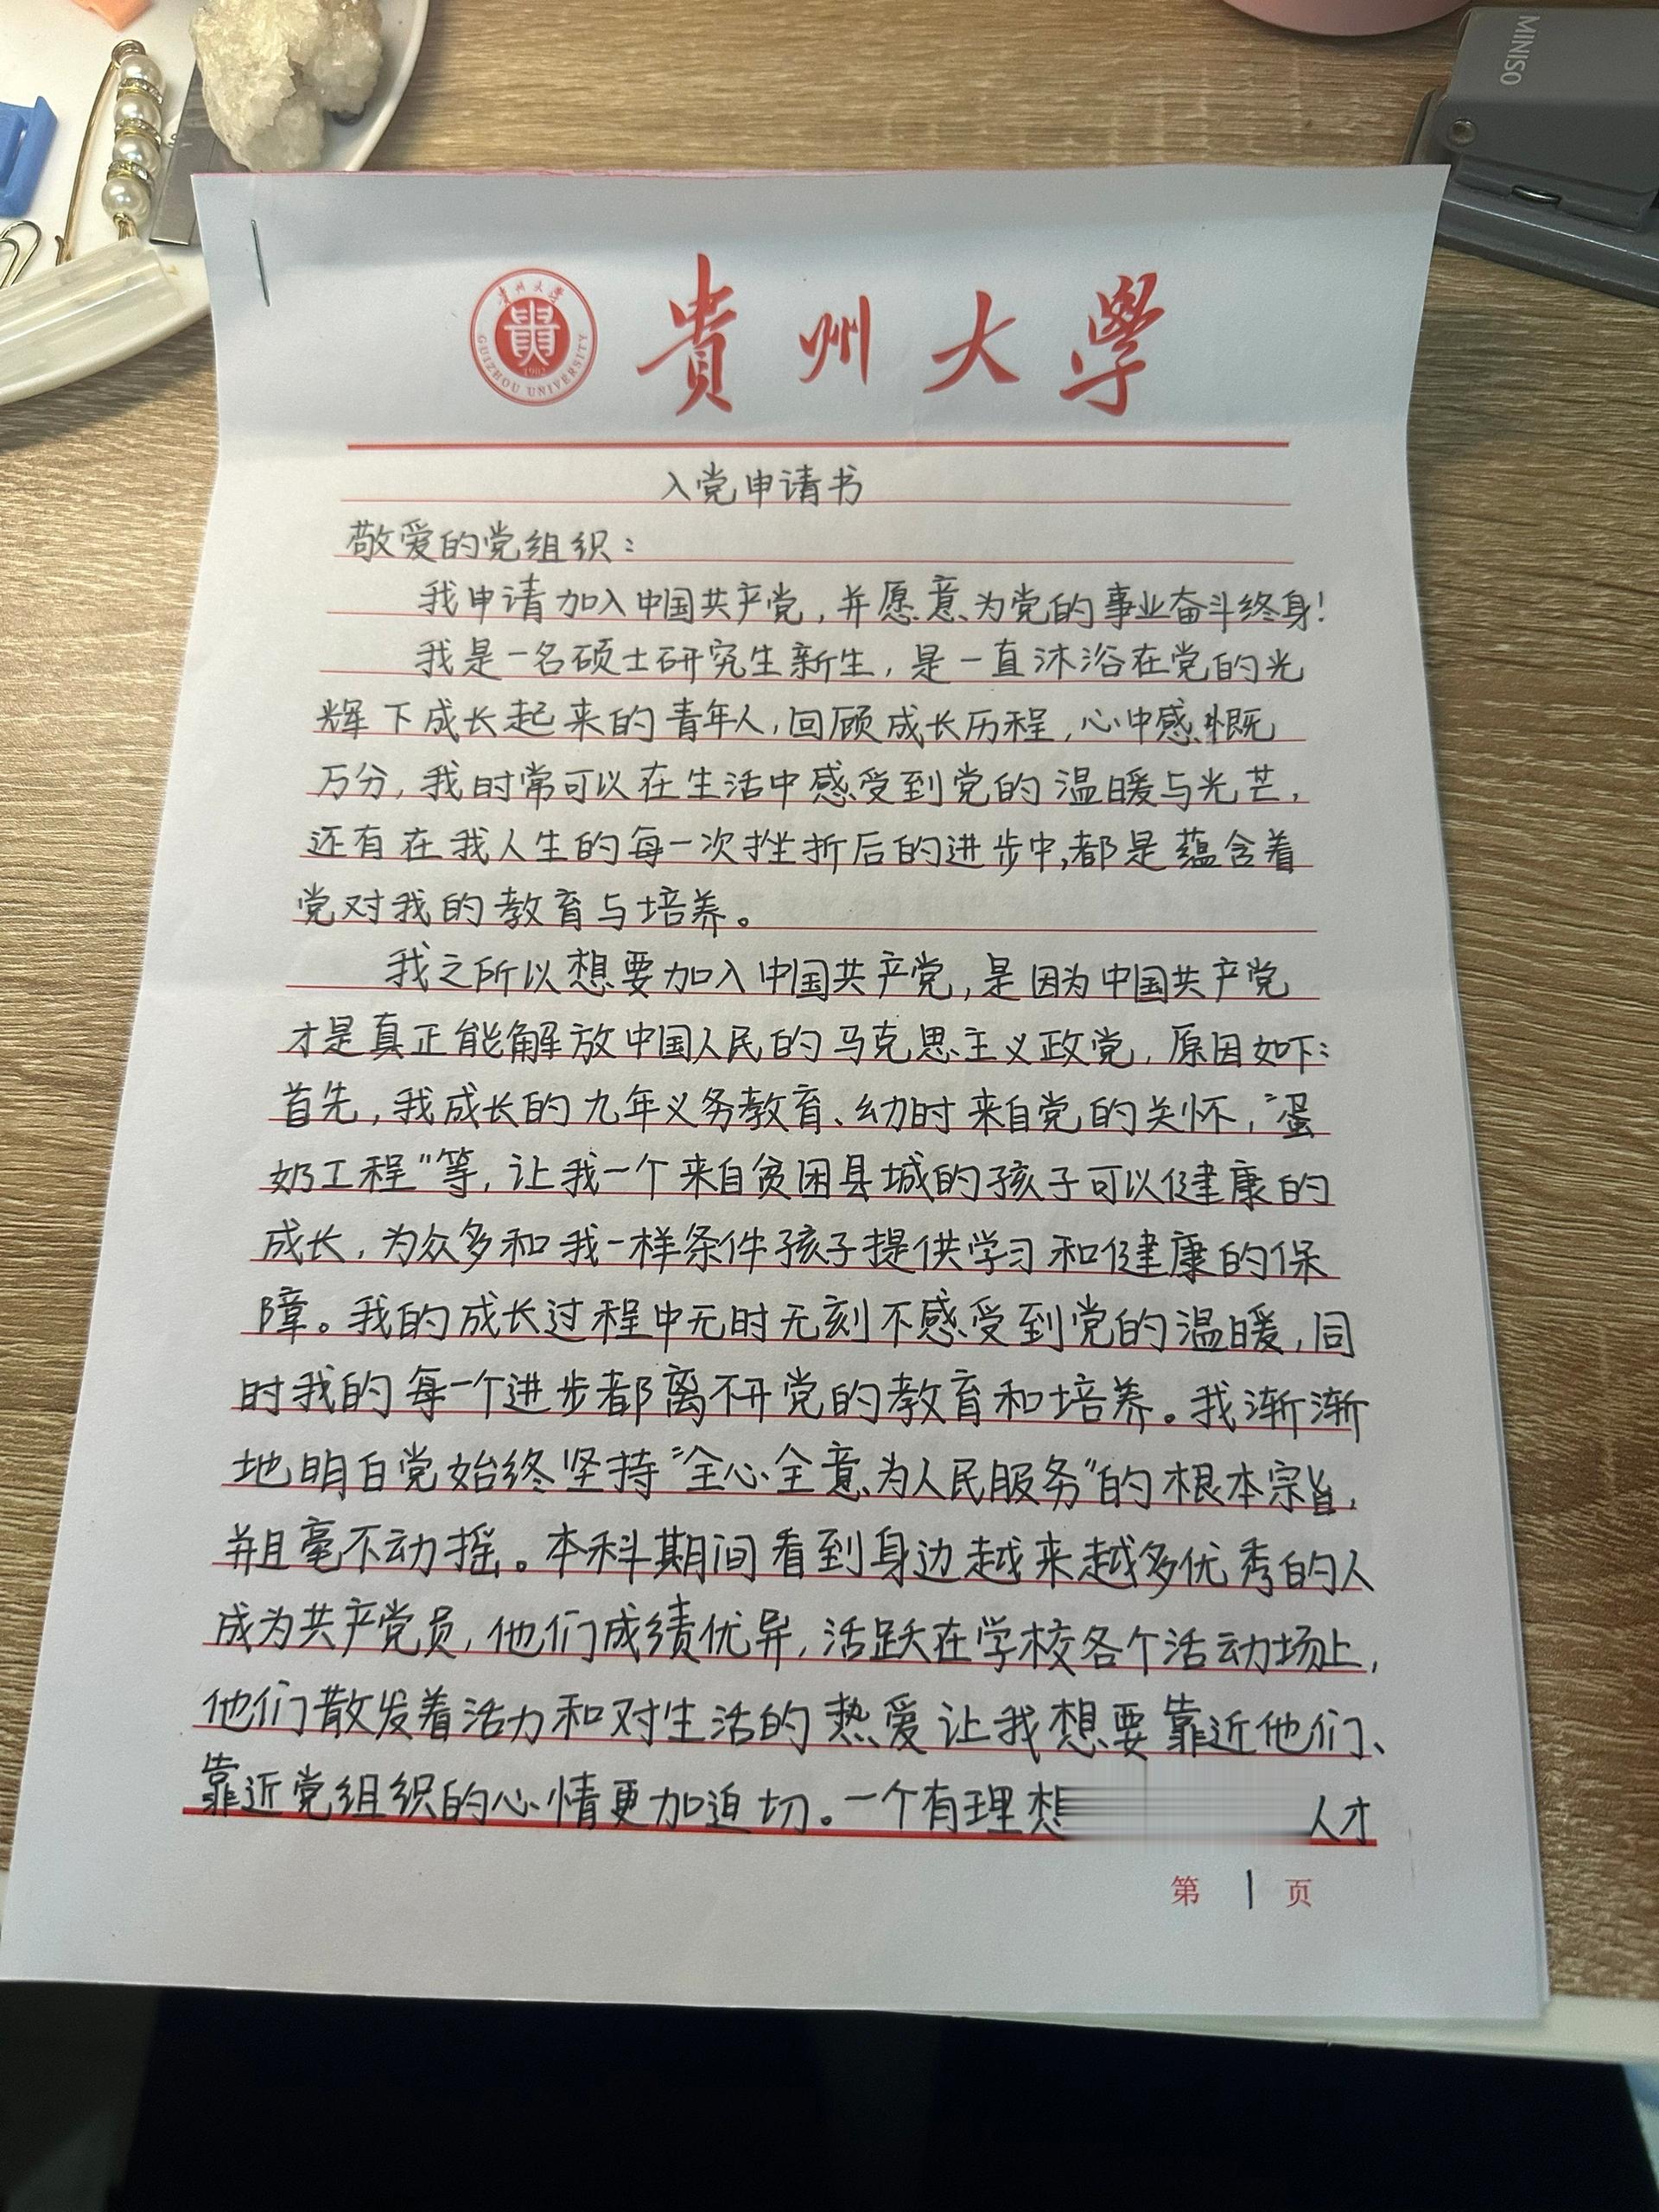 MINISO
貴州大學
GUIZHOU UNIVERSITY
1902
貴州大學
入党申请书
敬爱的党组织：
我申请加入中国共产党，并愿意为党的事业奋斗终身！
我是一名硕士研究生新生，是一直沐浴在党的光
辉下成长起来的青年人，回顾成长历程，心中感慨
万分，我时常可以在生活中感受到党的温暖与光芒，
还有在我人生的每一次挫折后的进步中，都是蕴含着
党对我的教育与培养。
我之所以想要加入中国共产党，是因为中国共产党
才是真正能解放中国人民的马克思主义政党，原因如下：
首先，我成长的九年义务教育、幼时来自党的关怀，“蛋
奶工程”等，让我一个来自贫困县城的孩子可以健康的
成长，为众多和我一样条件孩子提供学习和健康的保
障。我的成长过程中无时无刻不感受到党的温暖，同
时我的每一个进步都离不开党的教育和培养。我渐渐
地明白党始终坚持“全心全意为人民服务”的根本宗旨，
并且毫不动摇。本科期间看到身边越来越多优秀的人
成为共产党员，他们成绩优异，活跃在学校各个活动场上，
他们散发着活力和对生活的热爱让我想要靠近他们、
靠近党组织的心情更加迫切。一个有理想 人才
第 1 页